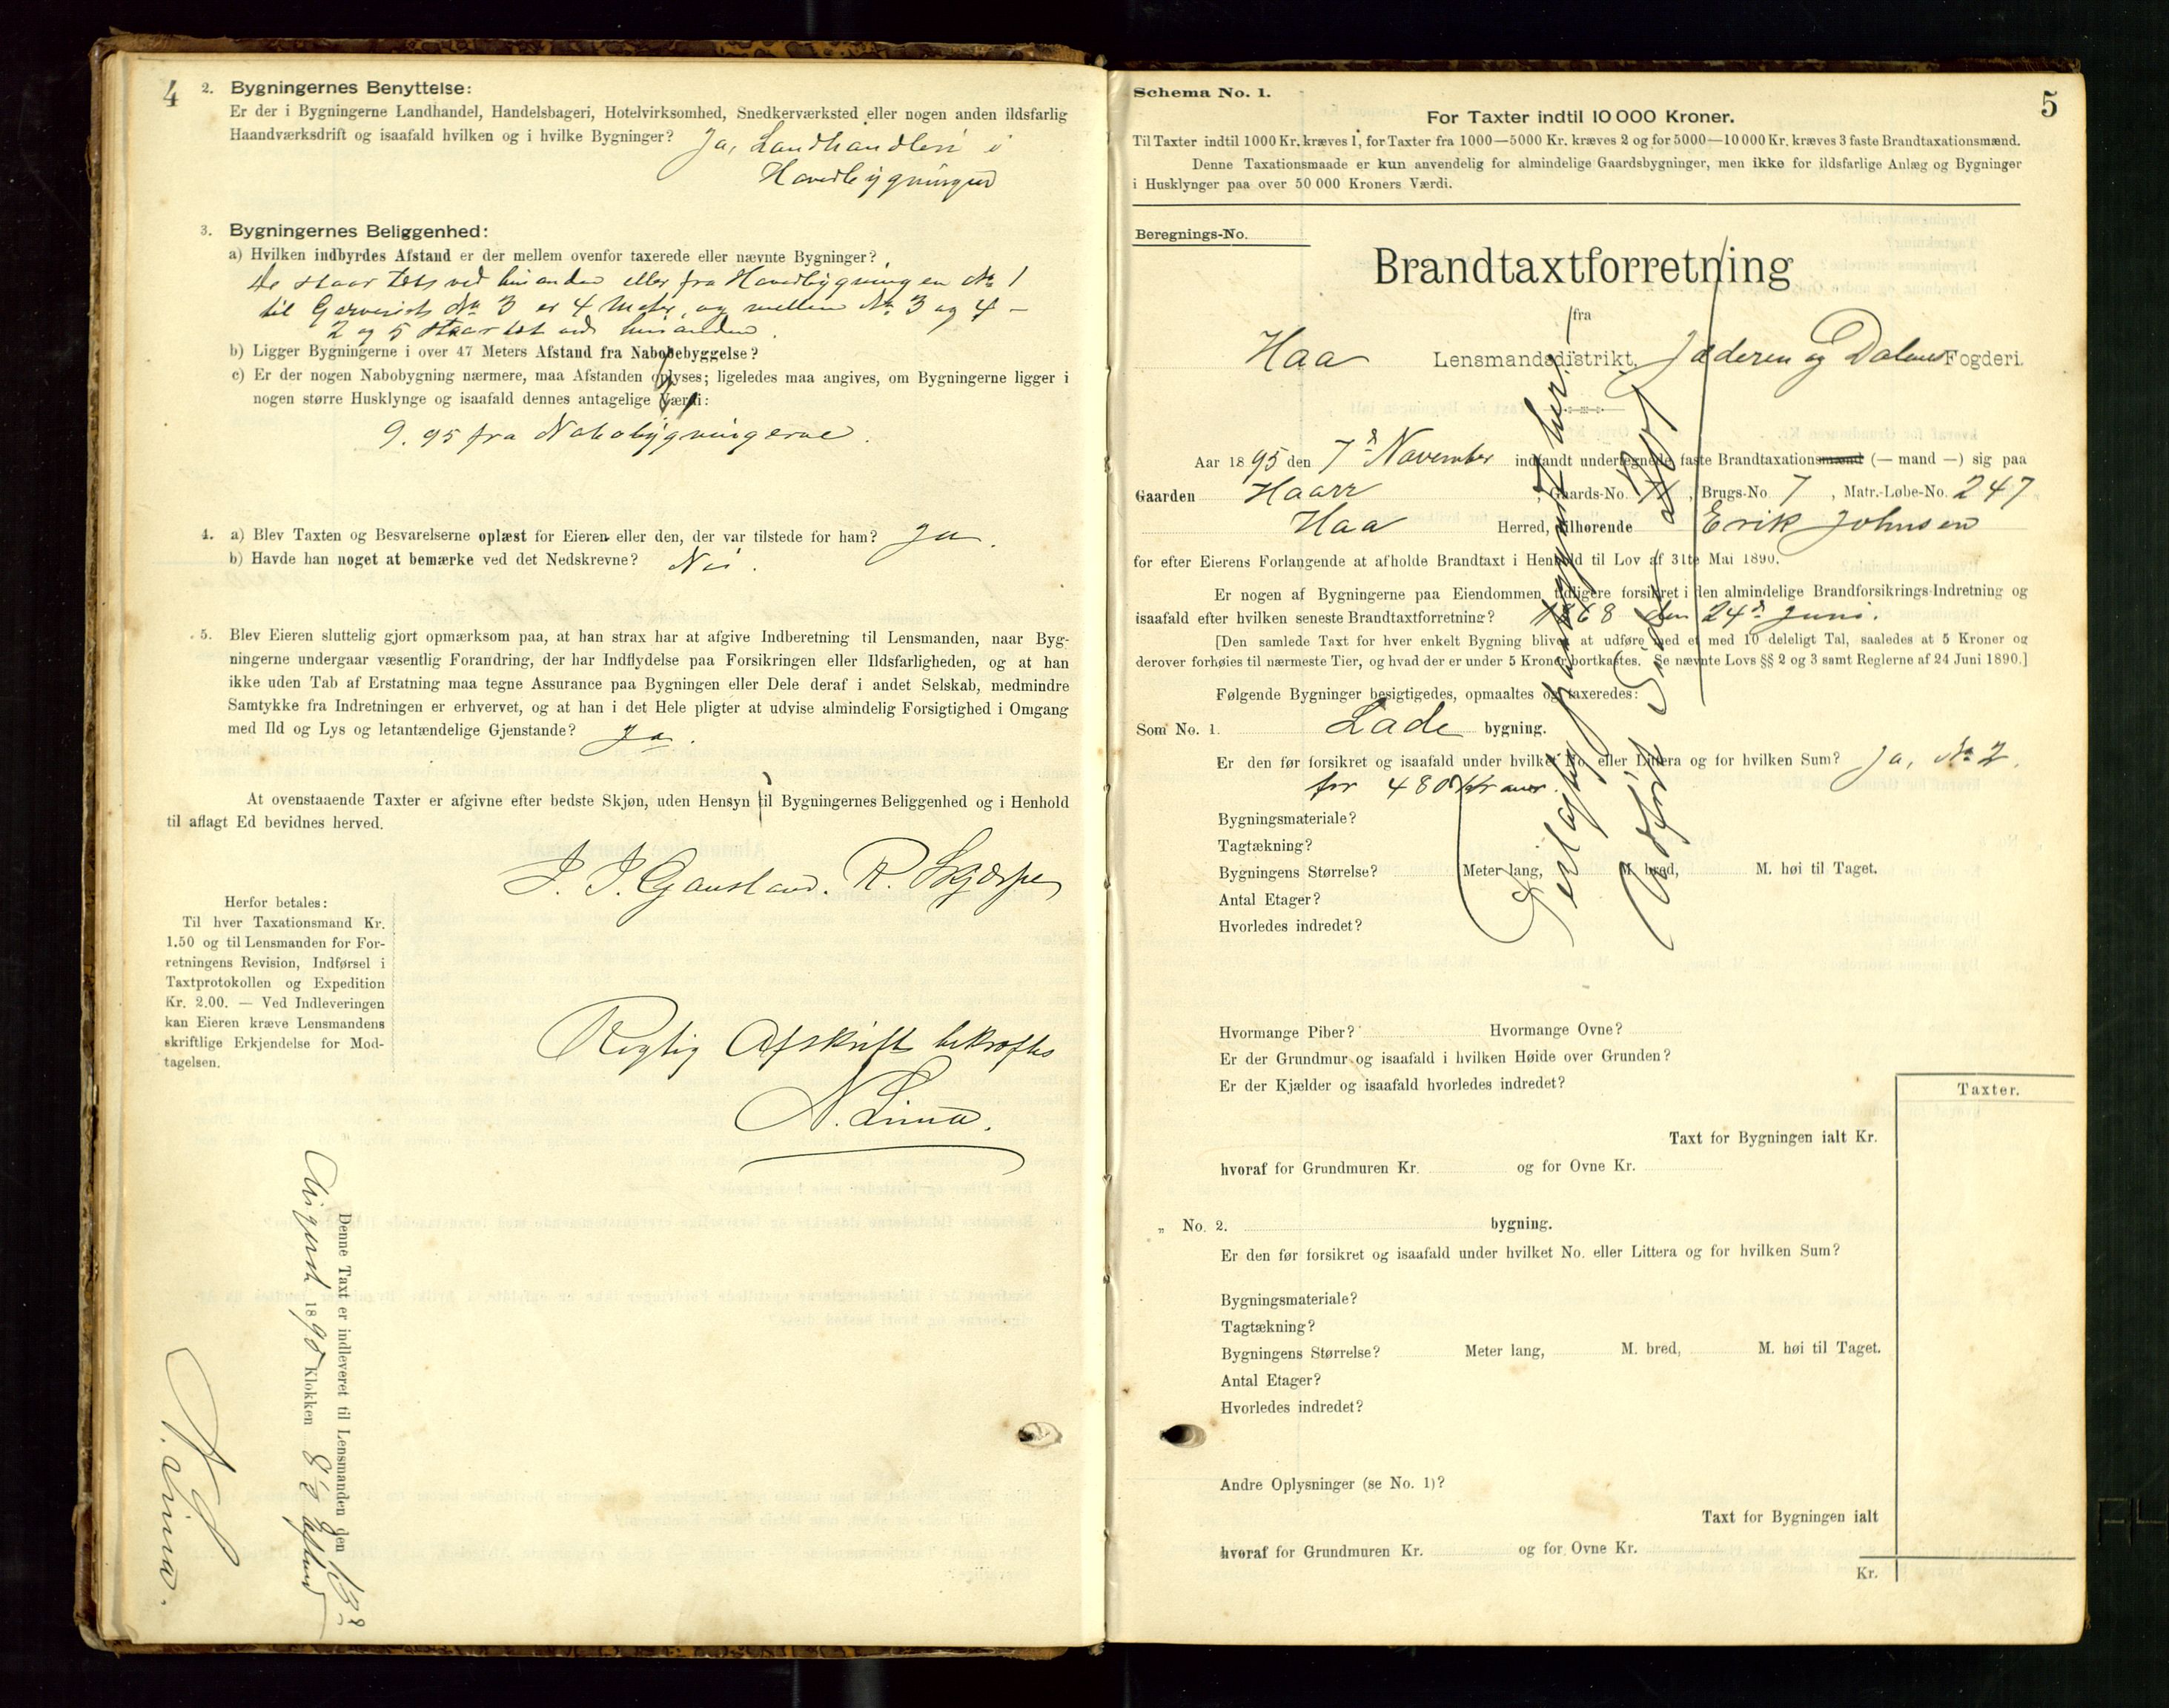 4
2. Bygningernes Benyttelse:
Er der i Bygningerne Landhandel, Handelsbageri, Hotelvirksomhed, Snedkerværksted eller nogen anden ildsfarlig
Haandværksdrift og isaafald hvilken og i hvilke Bygninger? Ja, Landhandleri i
Hovedbygningen
3. Bygningernes Beliggenhed:
a) Hvilken indbyrdes Afstand er der mellem ovenfor taxerede eller nævnte Bygninger?
De staar tæt ved hinanden eller fra Hovedbygningen No 1
til Garveriet No 3 er 4 Meter, og mellem No 3 og 4 –
2 og 5 staar tæt ved hinanden.
b) Ligger Bygningerne i over 47 Meters Afstand fra Nabobebyggelse?
c) Er der nogen Nabobygning nærmere, maa Afstanden oplyses; ligeledes maa angives, om Bygningerne ligger i
nogen større Husklynge og isaafald dennes antagelige Værdi:
9.95 fra Nabobygningerne.
4. a) Blev Taxten og Besvarelserne oplæst for Eieren eller den, der var tilstede for ham? Ja.
b) Havde han noget at bemærke ved det Nedskrevne? Nei.
5. Blev Eieren sluttelig gjort opmærksom paa, at han strax har at afgive Indberetning til Lensmanden, naar Byg-
ningerne undergaar væsentlig Forandring, der har Indflydelse paa Forsikringen eller Ildsfarligheden, og at han
ikke uden Tab af Erstatning maa tegne Assurance paa Bygningen eller Dele deraf i andet Selskab, medmindre
Samtykke fra Indretningen er erhvervet, og at han i det Hele pligter at udvise almindelig Forsigtighed i Omgang
med Ild og Lys og letantændelige Gjenstande? Ja.
At ovenstaaende Taxter er afgivne efter bedste Skjøn, uden Hensyn til Bygningernes Beliggenhed og i Henhold
til aflagt Ed bevidnes herved.
J. J. Gausland. R. Skjærpe
Herfor betales:
Til hver Taxationsmand Kr.
1.50 og til Lensmanden for For-
retningens Revision, Indførsel i
Taxtprotokollen og Expedition
Kr. 2.00. — Ved Indleveringen
kan Eieren kræve Lensmandens
skriftlige Erkjendelse for Mod-
tagelsen.
Rigtig Afskrift bekræftes
N. Lima.
Denne Taxt er indleveret til Lensmanden den 13
August 1895 Klokken 8 Eftm
N. Lima.
5
Schema No. 1.
For Taxter indtil 10 000 Kroner.
Til Taxter indtil 1000 Kr. kræves 1, for Taxter fra 1000—5000 Kr. kræves 2 og for 5000—10 000 Kr. kræves 3 faste Brandtaxationsmænd.
Denne Taxationsmaade er kun anvendelig for almindelige Gaardsbygninger, men ikke for ildsfarlige Anlæg og Bygninger
i Husklynger paa over 50 000 Kroners Værdi.
Beregnings-No.
Brandtaxtforretning
fra
Haa Lensmandsdistrikt, Jæderen og Dalene Fogderi.
Aar 1895 den 7d November indfandt undertegnede faste Brandtaxationsmænd (— mand —) sig paa
Gaarden Haarr, Gaards-No. 11, Brugs-No. 7, Matr.-Løbe-No. 247
Haa Herred, tilhørende Erik Johnsen
for efter Eierens Forlangende at afholde Brandtaxt i Henhold til Lov af 31te Mai 1890.
Er nogen af Bygningerne paa Eiendommen tidligere forsikret i den almindelige Brandforsikrings-Indretning og
isaafald efter hvilken seneste Brandtaxtforretning? 1868 den 24d Juni.
[Den samlede Taxt for hver enkelt Bygning bliver at udføre med et med 10 deleligt Tal, saaledes at 5 Kroner og
derover forhøies til nærmeste Tier, og hvad der er under 5 Kroner bortkastes. Se nævnte Lovs §§ 2 og 3 samt Reglerne af 24 Juni 1890.]
Følgende Bygninger besigtigedes, opmaaltes og taxeredes:
Som No. 1. Lade bygning.
Er den før forsikret og isaafald under hvilket No. eller Littera og for hvilken Sum? Ja, No 2,
for 480 Kroner.
Bygningsmateriale?
Tagtækning?
Bygningens Størrelse? Meter lang, M. bred, M. høi til Taget.
Antal Etager?
Hvorledes indredet?
Hvormange Piber? Hvormange Ovne?
Er der Grundmur og isaafald i hvilken Høide over Grunden?
Er der Kjælder og isaafald hvorledes indredet?
Taxter.
Taxt for Bygningen ialt Kr.
hvoraf for Grundmuren Kr. og for Ovne Kr.
„ No. 2. bygning.
Er den før forsikret og isaafald under hvilket No. eller Littera og for hvilken Sum?
Bygningsmateriale?
Tagtækning?
Bygningens Størrelse? Meter lang, M. bred, M. høi til Taget.
Antal Etager?
Hvorledes indredet?
Andre Oplysninger (se No. 1)?
Taxt for Bygningen ialt
hvoraf for Grundmuren Kr. og for Ovne Kr.
Kr.
Feilagtig begyndt her.
Udført Side